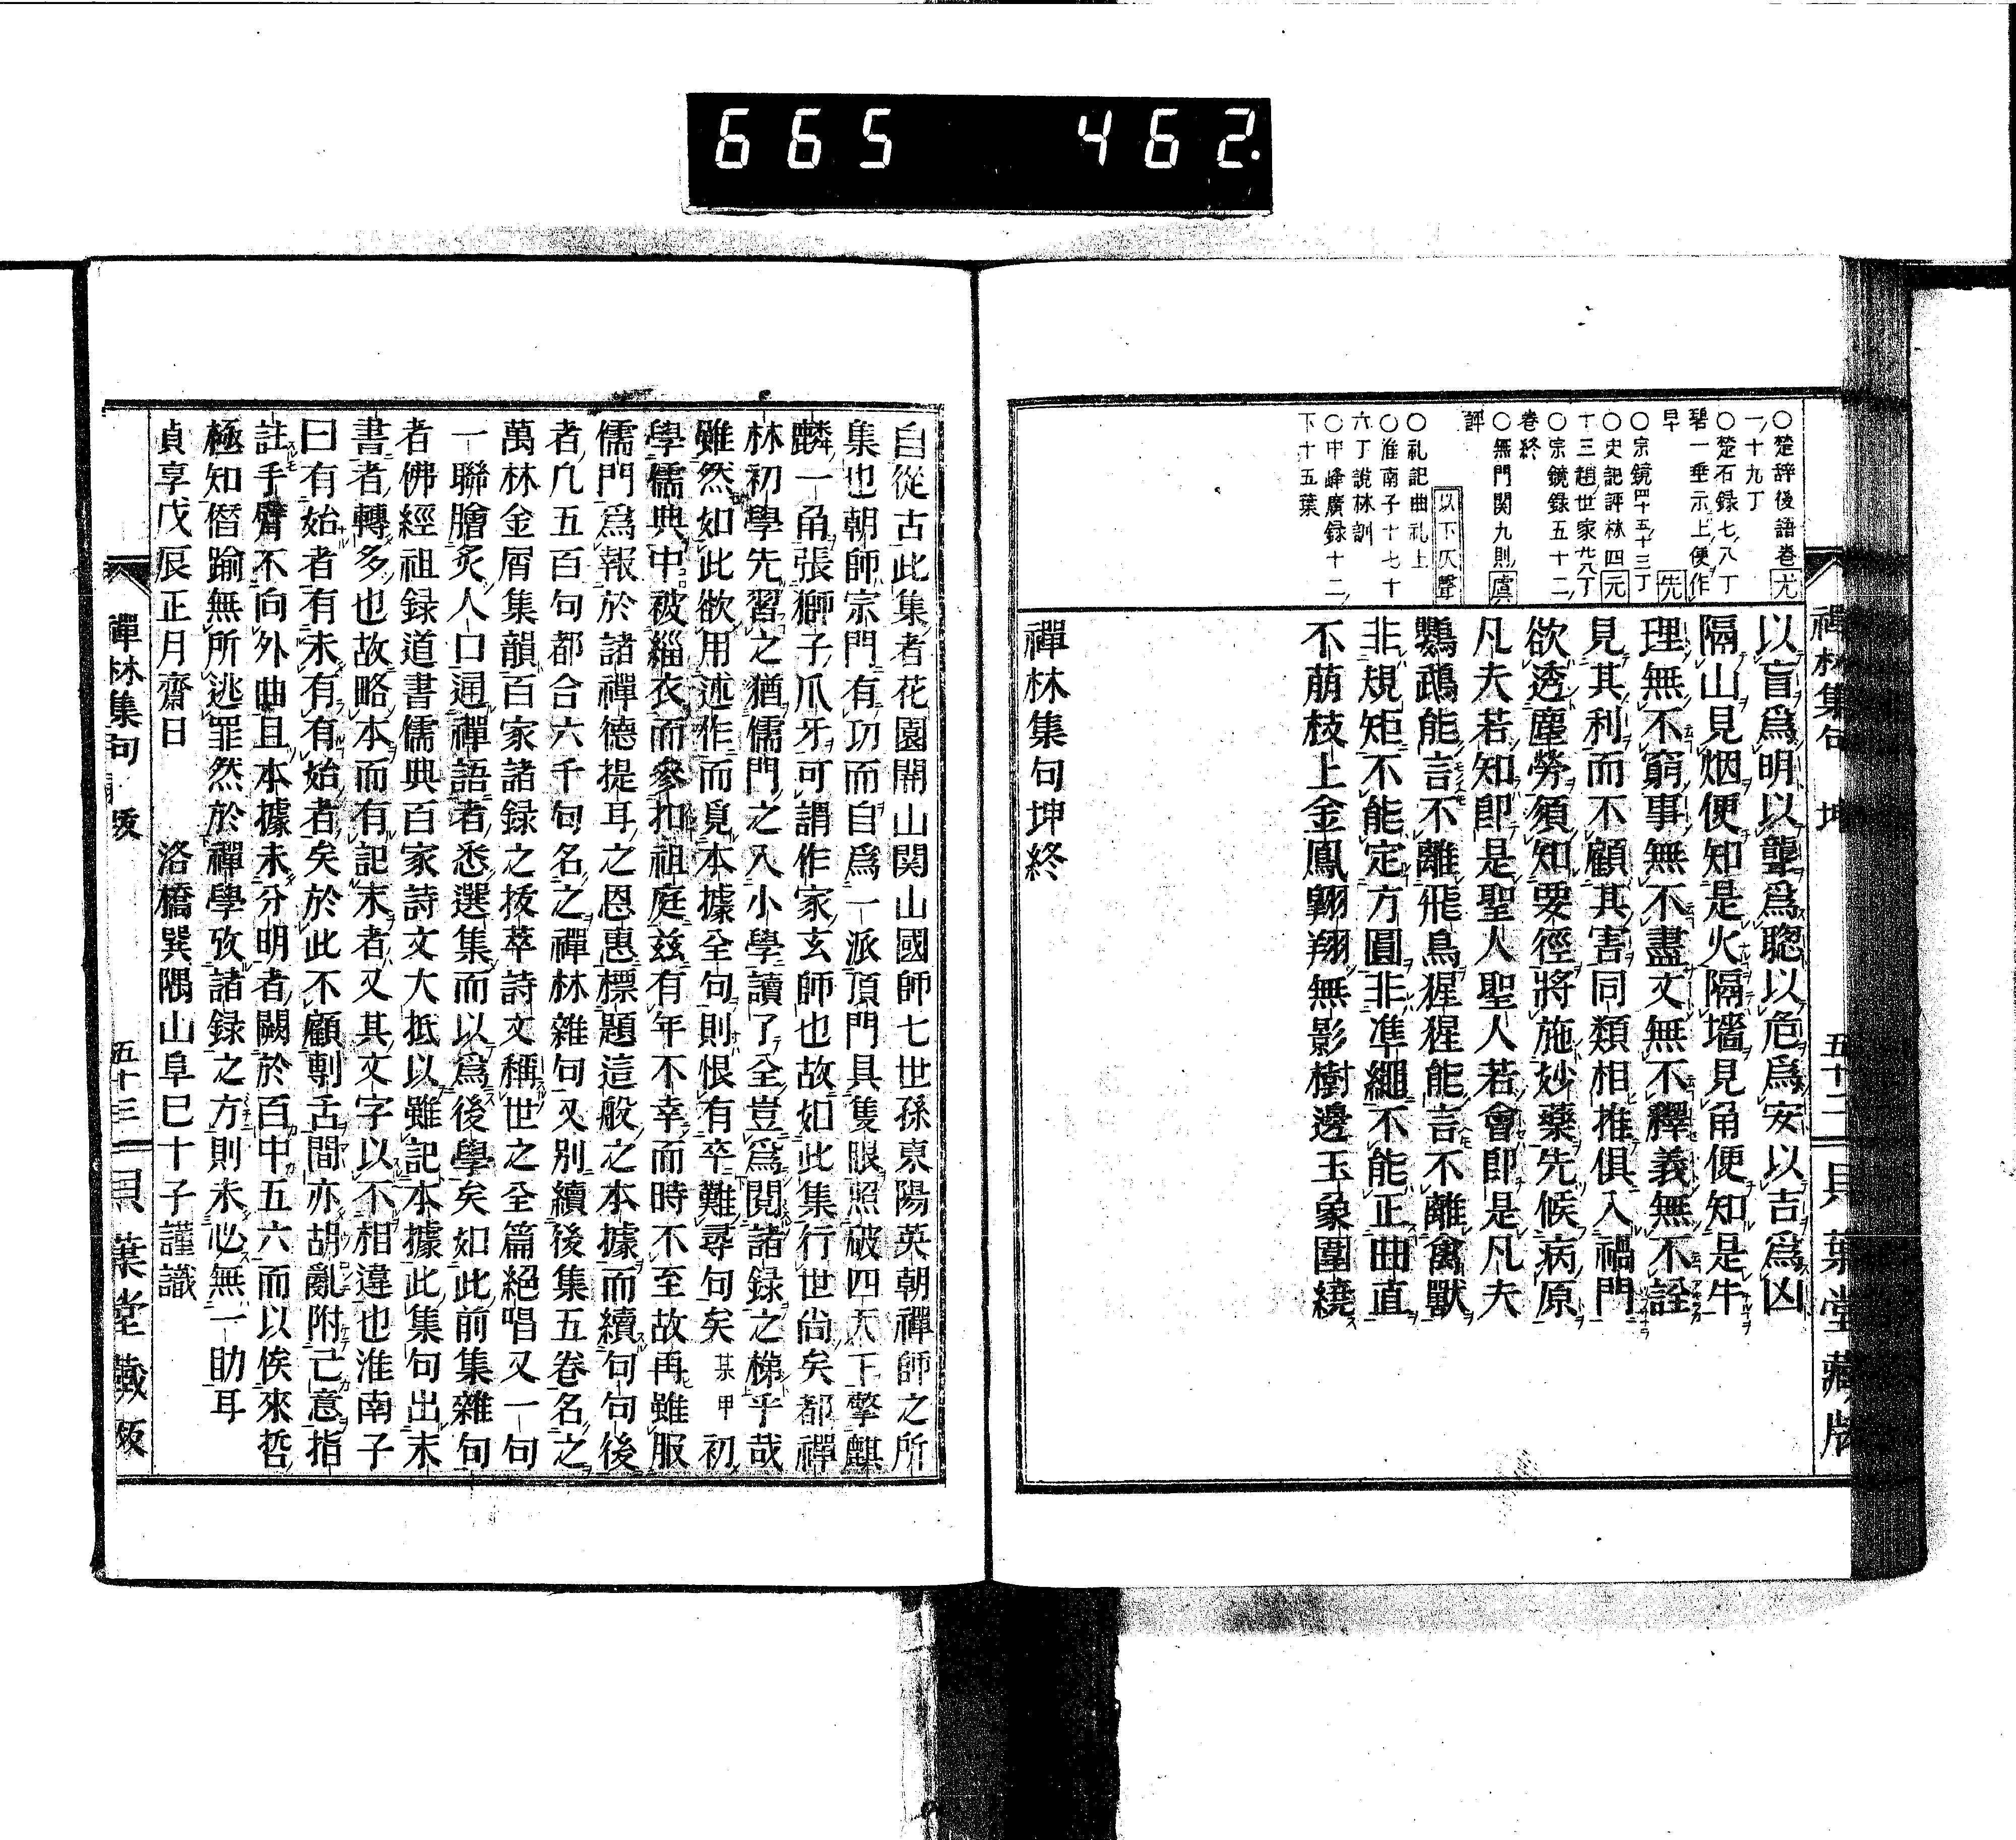 665 462.
禪林集句 坤 五十二 貝葉堂藏版
○楚辞後語卷 尤
一ノ十九丁
○楚石録七ノ八丁
碧一垂示上便作
早 先
○宗鏡四十五ノ十三丁
○史記評林四 元
十三趙世家九八丁
○宗鏡録五十二ノ
卷終
○無門関九則ノ 虞
評
以下仄聲
○礼記曲礼上
○淮南子十七ノ十
六丁說林訓
○中峰廣録十二ノ
下十五葉
以盲爲明以聾爲聰以危爲安以吉爲凶
隔山見烟便知是火隔墻見角便知是牛
理無不窮事無不盡文無不釋義無不詮
見其利而不顧其害同類相推俱入禍門
欲透塵勞須知要徑將施妙藥先候病原
凡夫若知即是聖人聖人若會即是凡夫
鸚鵡能言不離飛鳥猩猩能言不離禽獸
非規矩不能定方圓非準繩不能正曲直
不萠枝上金鳳翺翔無影樹邊玉象圍繞
禪林集句坤終
自從古此集者花園開山関山國師七世孫東陽英朝禪師之所
集也朝師宗門有功而自爲一派頂門具隻眼照破四天下擎麒
麟一角張獅子爪牙可謂作家玄師也故如此集行世尙矣都禪
林初學先習之猶儒門之入小學讀了全豈爲閱諸録之梯乎哉
雖然如此欲用述作而覓本據全句則恨有卒難尋句矣某甲初
學儒典中被緇衣而參扣祖庭茲有年不幸而時不至故再雖服
儒門爲報於諸禪德提耳之恩惠標題這般之本據而續句句後
者凢五百句都合六千句名之禪林雜句又別續後集五卷名之
萬林金屑集韻百家諸録之拔萃詩文稱世之全篇絕唱又一句
一聯膾炙人口通禪語者悉選集而以爲後學矣如此前集雜句
者佛經祖録道書儒典百家詩文大抵以雖記本據此集句出末
書者轉多也故略本而有記末者又其文字以不相違也淮南子
曰有始者有未有有始者矣於此不顧剸舌間亦胡亂附己意指
註手臂不向外曲且本據未分明者闕於百中五六而以俟來哲
極知僭踰無所逃罪然於禪學攷諸録之方則未必無一助耳
貞享戊辰正月齋日 洛橋巽隅山阜巳十子謹識
禪林集句 跋 五十三 貝葉堂藏版